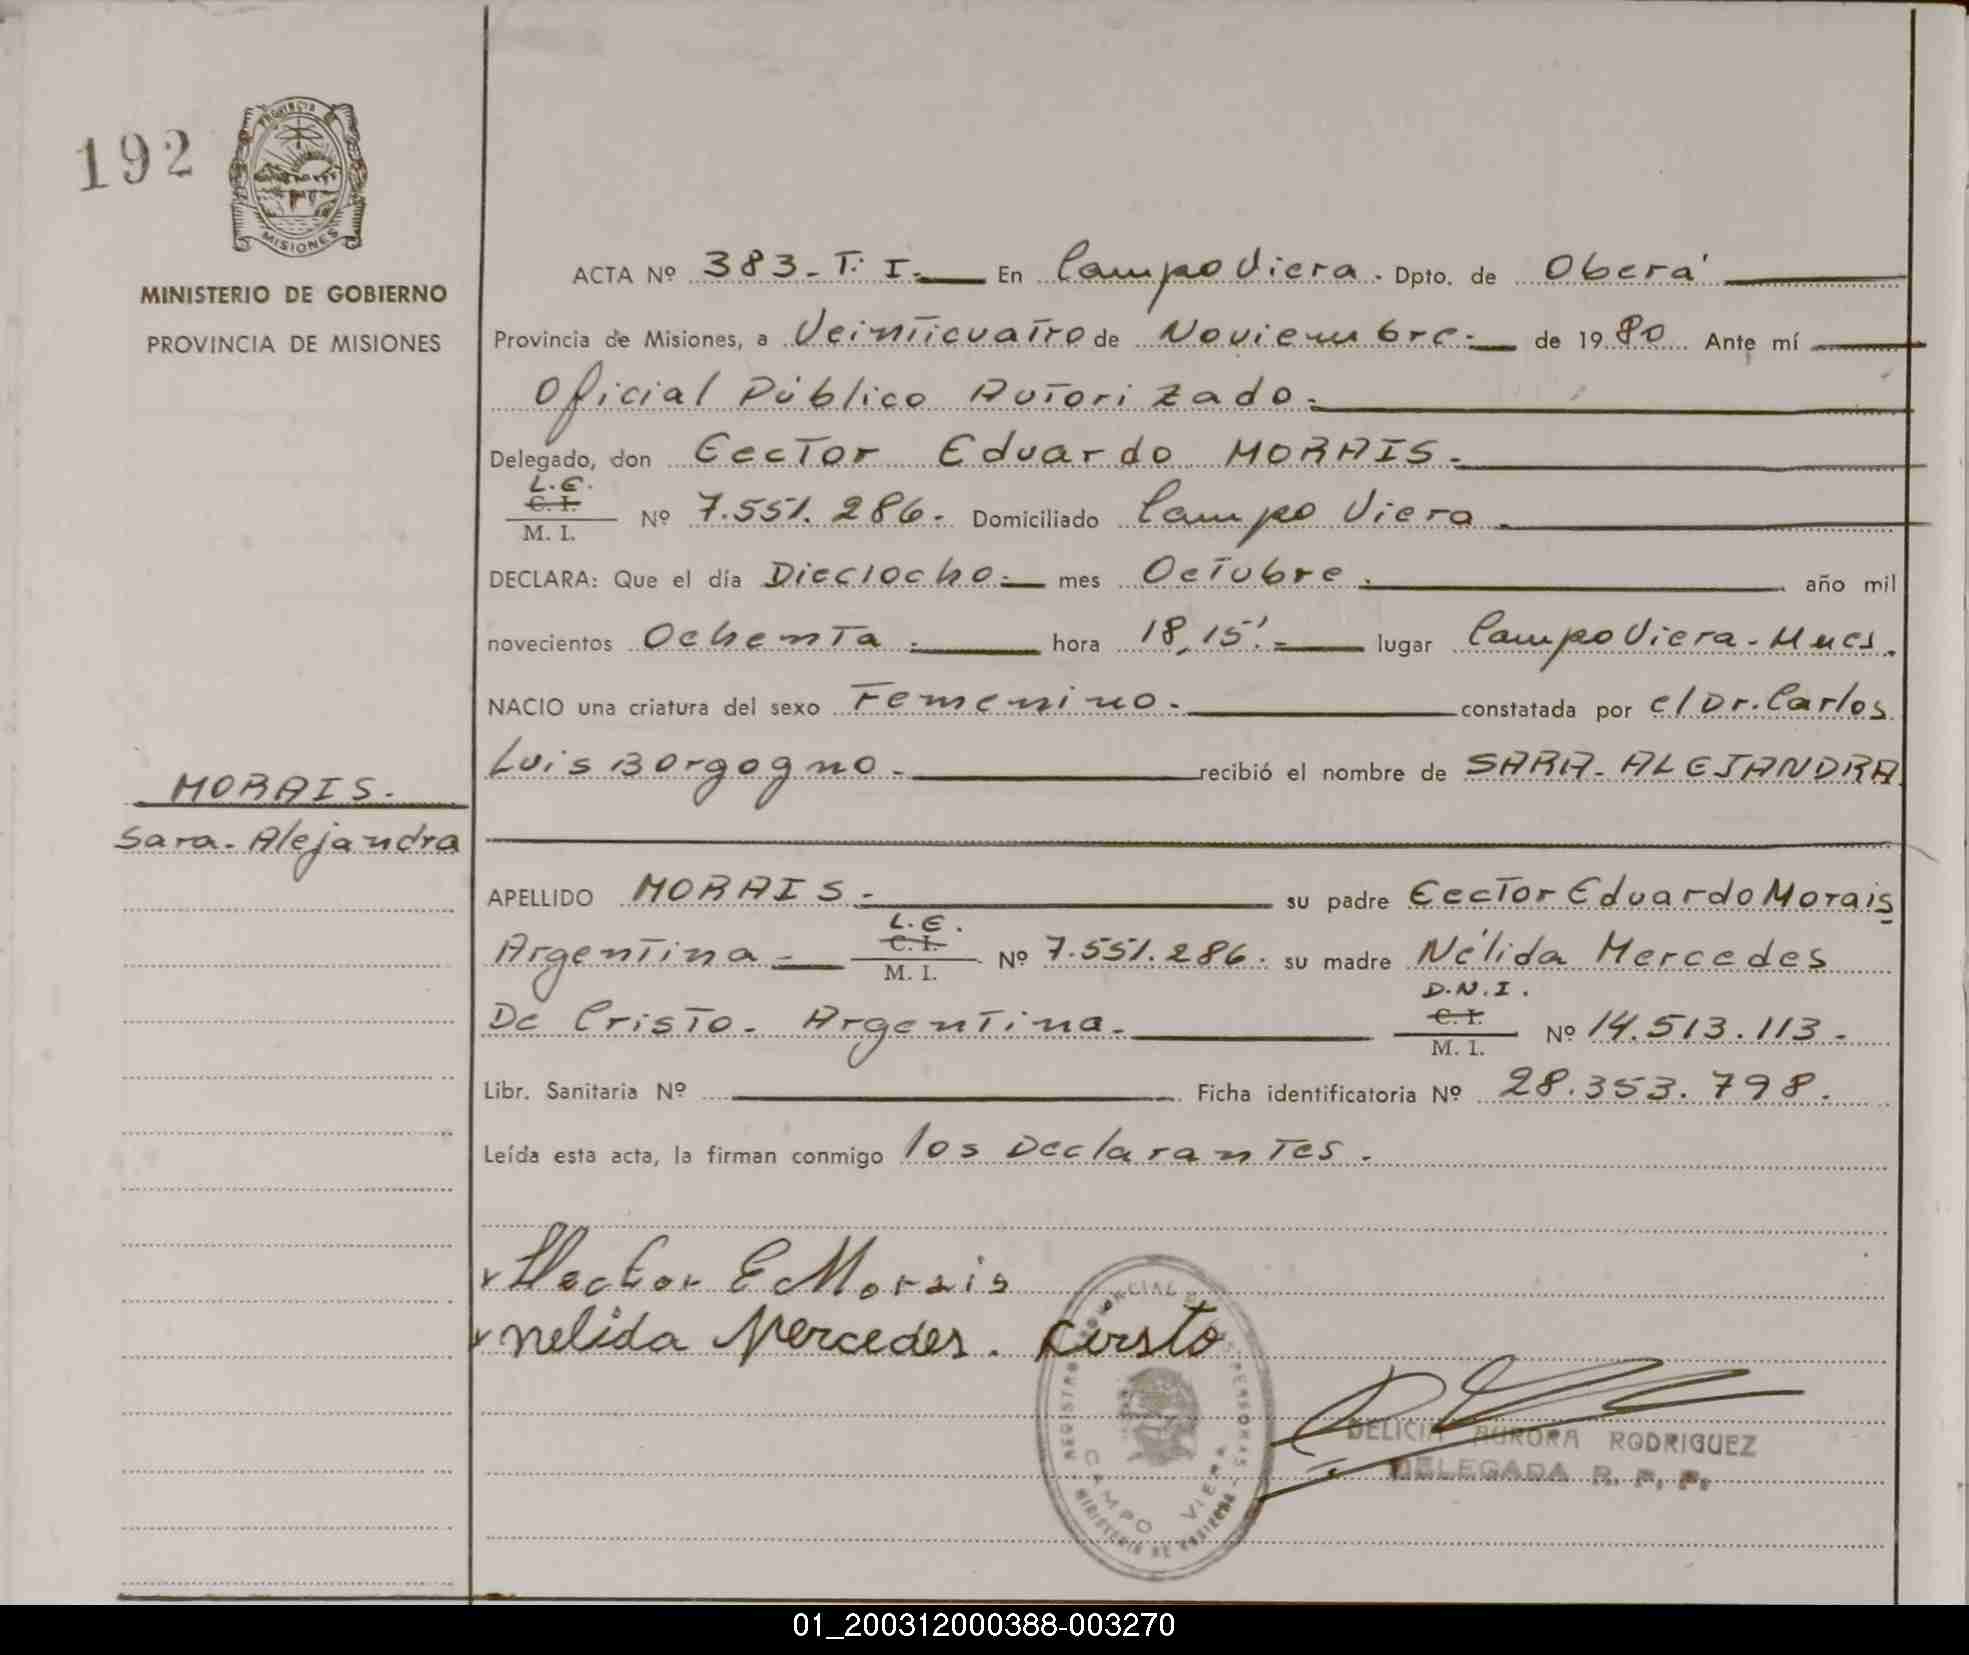 192
PROVINCIA DE
MISIONES
MINISTERIO DE GOBIERNO
PROVINCIA DE MISIONES
ACTA Nº 383-T: I. En Campo Viera. Dpto. de Oberá
Provincia de Misiones, a Veinticuatro de Noviembre. de 1980 Ante mí
Oficial Público Autorizado.
Delegado, don Eector Eduardo MORAIS.
L.E.
C. I.
M. I. Nº 7.551.286. Domiciliado Campo Viera.
DECLARA: Que el día Dieciocho. mes Octubre. año mil
novecientos Ochenta. hora 18,15'. lugar Campo Viera. Mnes.
NACIO una criatura del sexo Femenino. constatada por el Dr. Carlos
Luis Borgogno. recibió el nombre de SARA-ALEJANDRA
MORAIS.
Sara-Alejandra
APELLIDO MORAIS. su padre Eector Eduardo Morais
L.E.
C. I.
Argentina M. I. Nº 7.551.286. su madre Nélida Mercedes
D.N.I.
C. I.
De Cristo. Argentina. M. I. Nº 14.513.113.
Libr. Sanitaria Nº Ficha identificatoria Nº 28.353.798.
Leída esta acta, la firman conmigo los Declarantes.
Hector E Morais
nelida Mercedes. Cirsto
REGISTRO PROVINCIAL DE LAS PERSONAS
CAMPO VIERA
MINISTERIO DE GOBIERNO
DELICIA AURORA RODRIGUEZ
DELEGADA R. P. P.
01_200312000388-003270